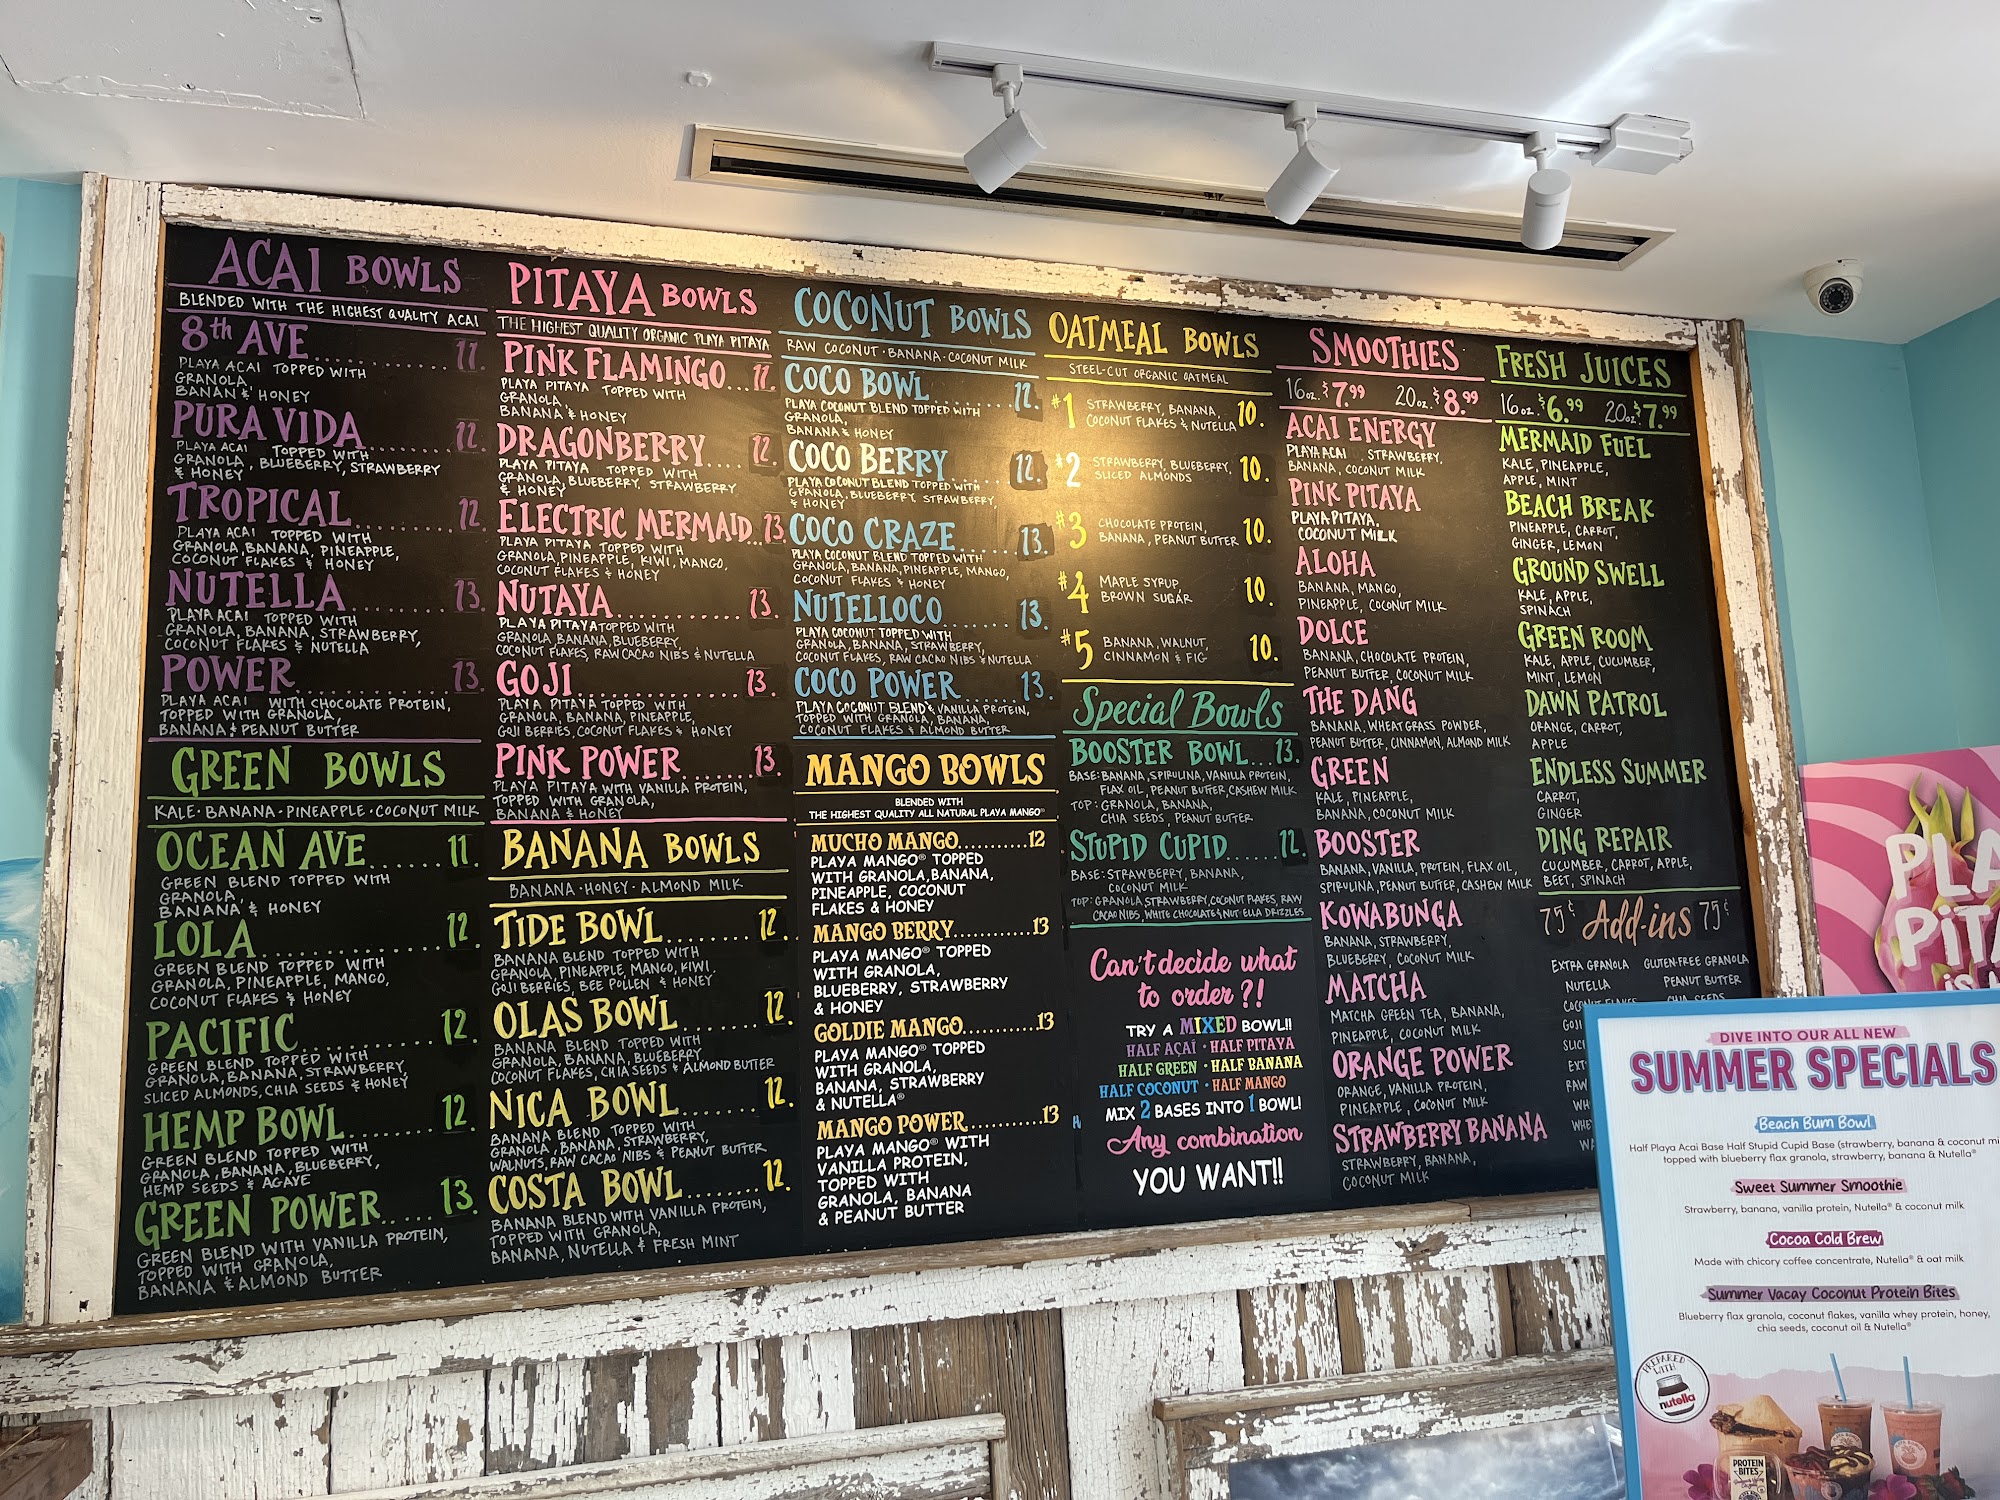 ACAI BOWLS
BLENDED WITH THE HIGHEST QUALITY ACAI
8th AVE........11.
PLAYA ACAI TOPPED WITH
GRANOLA,
BANAN & HONEY
PURA VIDA........12.
PLAYA ACAI TOPPED WITH
GRANOLA, BLUEBERRY, STRAWBERRY
& HONEY
TROPICAL........12.
PLAYA ACAI TOPPED WITH
GRANOLA, BANANA, PINEAPPLE,
COCONUT FLAKES & HONEY
NUTELLA........13.
PLAYA ACAI TOPPED WITH
GRANOLA, BANANA, STRAWBERRY,
COCONUT FLAKES & NUTELLA
POWER........13.
PLAYA ACAI WITH CHOCOLATE PROTEIN,
TOPPED WITH GRANOLA,
BANANA & PEANUT BUTTER
GREEN BOWLS
KALE · BANANA · PINEAPPLE · COCONUT MILK
OCEAN AVE......11.
GREEN BLEND TOPPED WITH
GRANOLA,
BANANA & HONEY
LOLA........12.
GREEN BLEND TOPPED WITH
GRANOLA, PINEAPPLE, MANGO,
COCONUT FLAKES & HONEY
PACIFIC........12.
GREEN BLEND TOPPED WITH
GRANOLA, BANANA, STRAWBERRY,
SLICED ALMONDS, CHIA SEEDS & HONEY
HEMP BOWL........12.
GREEN BLEND TOPPED WITH
GRANOLA, BANANA, BLUEBERRY,
HEMP SEEDS & AGAVE
GREEN POWER.....13.
GREEN BLEND WITH VANILLA PROTEIN,
TOPPED WITH GRANOLA,
BANANA & ALMOND BUTTER
PITAYA BOWLS
THE HIGHEST QUALITY ORGANIC PLAYA PITAYA
PINK FLAMINGO...11.
PLAYA PITAYA TOPPED WITH
GRANOLA,
BANANA & HONEY
DRAGONBERRY....12.
PLAYA PITAYA TOPPED WITH
GRANOLA, BLUEBERRY, STRAWBERRY
& HONEY
ELECTRIC MERMAID..13.
PLAYA PITAYA TOPPED WITH
GRANOLA, PINEAPPLE, KIWI, MANGO,
COCONUT FLAKES & HONEY
NUTAYA........13.
PLAYA PITAYA TOPPED WITH
GRANOLA, BANANA, BLUEBERRY,
COCONUT FLAKES, RAW CACAO NIBS & NUTELLA
GOJI........13.
PLAYA PITAYA TOPPED WITH
GRANOLA, BANANA, PINEAPPLE,
GOJI BERRIES, COCONUT FLAKES & HONEY
PINK POWER.......13.
PLAYA PITAYA WITH VANILLA PROTEIN,
TOPPED WITH GRANOLA,
BANANA & HONEY
BANANA BOWLS
BANANA · HONEY · ALMOND MILK
TIDE BOWL........12.
BANANA BLEND TOPPED WITH
GRANOLA, PINEAPPLE, MANGO, KIWI,
GOJI BERRIES, BEE POLLEN & HONEY
OLAS BOWL........12.
BANANA BLEND TOPPED WITH
GRANOLA, BANANA, BLUEBERRY
COCONUT FLAKES, CHIA SEEDS & ALMOND BUTTER
NICA BOWL........12.
BANANA BLEND TOPPED WITH
GRANOLA, BANANA, STRAWBERRY,
WALNUTS, RAW CACAO NIBS & PEANUT BUTTER
COSTA BOWL........12.
BANANA BLEND WITH VANILLA PROTEIN,
TOPPED WITH GRANOLA,
BANANA, NUTELLA & FRESH MINT
COCONUT BOWLS
RAW COCONUT · BANANA · COCONUT MILK
COCO BOWL........12.
PLAYA COCONUT BLEND TOPPED WITH
GRANOLA,
BANANA & HONEY
COCO BERRY......12.
PLAYA COCONUT BLEND TOPPED WITH
GRANOLA, BLUEBERRY STRAWBERRY,
& HONEY
COCO CRAZE......13.
PLAYA COCONUT BLEND TOPPED WITH
GRANOLA, BANANA, PINEAPPLE, MANGO,
COCONUT FLAKES & HONEY
NUTELLOCO........13.
PLAYA COCONUT TOPPED WITH
GRANOLA, BANANA, STRAWBERRY,
COCONUT FLAKES, RAW CACAO NIBS & NUTELLA
COCO POWER......13.
PLAYA COCONUT BLEND & VANILLA PROTEIN,
TOPPED WITH GRANOLA, BANANA,
COCONUT FLAKES & ALMOND BUTTER
MANGO BOWLS
BLENDED WITH
THE HIGHEST QUALITY ALL NATURAL PLAYA MANGO®
MUCHO MANGO...........12
PLAYA MANGO® TOPPED
WITH GRANOLA, BANANA,
PINEAPPLE, COCONUT
FLAKES & HONEY
MANGO BERRY............13
PLAYA MANGO® TOPPED
WITH GRANOLA,
BLUEBERRY, STRAWBERRY
& HONEY
GOLDIE MANGO...........13
PLAYA MANGO® TOPPED
WITH GRANOLA,
BANANA, STRAWBERRY
& NUTELLA®
MANGO POWER...........13
PLAYA MANGO® WITH
VANILLA PROTEIN,
TOPPED WITH
GRANOLA, BANANA
& PEANUT BUTTER
OATMEAL BOWLS
STEEL-CUT ORGANIC OATMEAL
#1 STRAWBERRY, BANANA, COCONUT FLAKES & NUTELLA 10.
#2 STRAWBERRY, BLUEBERRY, SLICED ALMONDS 10.
#3 CHOCOLATE PROTEIN, BANANA, PEANUT BUTTER 10.
#4 MAPLE SYRUP, BROWN SUGAR 10.
#5 BANANA, WALNUT, CINNAMON & FIG 10.
Special Bowls
BOOSTER BOWL...13.
BASE: BANANA, SPIRULINA, VANILLA PROTEIN,
FLAX OIL, PEANUT BUTTER, CASHEW MILK
TOP: GRANOLA, BANANA,
CHIA SEEDS, PEANUT BUTTER
STUPID CUPID......12.
BASE: STRAWBERRY, BANANA,
COCONUT MILK
TOP: GRANOLA, STRAWBERRY, COCONUT FLAKES, RAW
CACAO NIBS, WHITE CHOCOLATE & NUTELLA DRIZZLES
Can't decide what
to order?!
TRY A MIXED BOWL!!
HALF AÇAÍ · HALF PITAYA
HALF GREEN · HALF BANANA
HALF COCONUT · HALF MANGO
MIX 2 BASES INTO 1 BOWL!
Any combination
YOU WANT!!
SMOOTHIES
16 oz. $7.99 20 oz. $8.99
ACAI ENERGY
PLAYA ACAI, STRAWBERRY,
BANANA, COCONUT MILK
PINK PITAYA
PLAYA PITAYA,
COCONUT MILK
ALOHA
BANANA, MANGO,
PINEAPPLE, COCONUT MILK
DOLCE
BANANA, CHOCOLATE PROTEIN,
PEANUT BUTTER, COCONUT MILK
THE DANG
BANANA, WHEATGRASS POWDER,
PEANUT BUTTER, CINNAMON, ALMOND MILK
GREEN
KALE, PINEAPPLE,
BANANA, COCONUT MILK
BOOSTER
BANANA, VANILLA, PROTEIN, FLAX OIL,
SPIRULINA, PEANUT BUTTER, CASHEW MILK
KOWABUNGA
BANANA, STRAWBERRY,
BLUEBERRY, COCONUT MILK
MATCHA
MATCHA GREEN TEA, BANANA,
PINEAPPLE, COCONUT MILK
ORANGE POWER
ORANGE, VANILLA PROTEIN,
PINEAPPLE, COCONUT MILK
STRAWBERRY BANANA
STRAWBERRY, BANANA,
COCONUT MILK
FRESH JUICES
16 oz. $6.99 20 oz. $7.99
MERMAID FUEL
KALE, PINEAPPLE,
APPLE, MINT
BEACH BREAK
PINEAPPLE, CARROT,
GINGER, LEMON
GROUND SWELL
KALE, APPLE,
SPINACH
GREEN ROOM
KALE, APPLE, CUCUMBER,
MINT, LEMON
DAWN PATROL
ORANGE, CARROT,
APPLE
ENDLESS SUMMER
CARROT,
GINGER
DING REPAIR
CUCUMBER, CARROT, APPLE,
BEET, SPINACH
75¢ Add-ins 75¢
EXTRA GRANOLA GLUTEN-FREE GRANOLA
NUTELLA PEANUT BUTTER
COCONUT FLAKES CHIA SEEDS
GOJI
RAW
PITAYA
DIVE INTO OUR ALL NEW
SUMMER SPECIALS
Beach Bum Bowl
Half Playa Acai Base Half Stupid Cupid Base (strawberry, banana & coconut
topped with blueberry flax granola, strawberry, banana & Nutella®
Sweet Summer Smoothie
Strawberry, banana, vanilla protein, Nutella® & coconut milk
Cocoa Cold Brew
Made with chicory coffee concentrate, Nutella® & oat milk
Summer Vacay Coconut Protein Bites
Blueberry flax granola, coconut flakes, vanilla whey protein, honey,
chia seeds, coconut oil & Nutella®
PREPARED WITH
nutella
PROTEIN
BITES